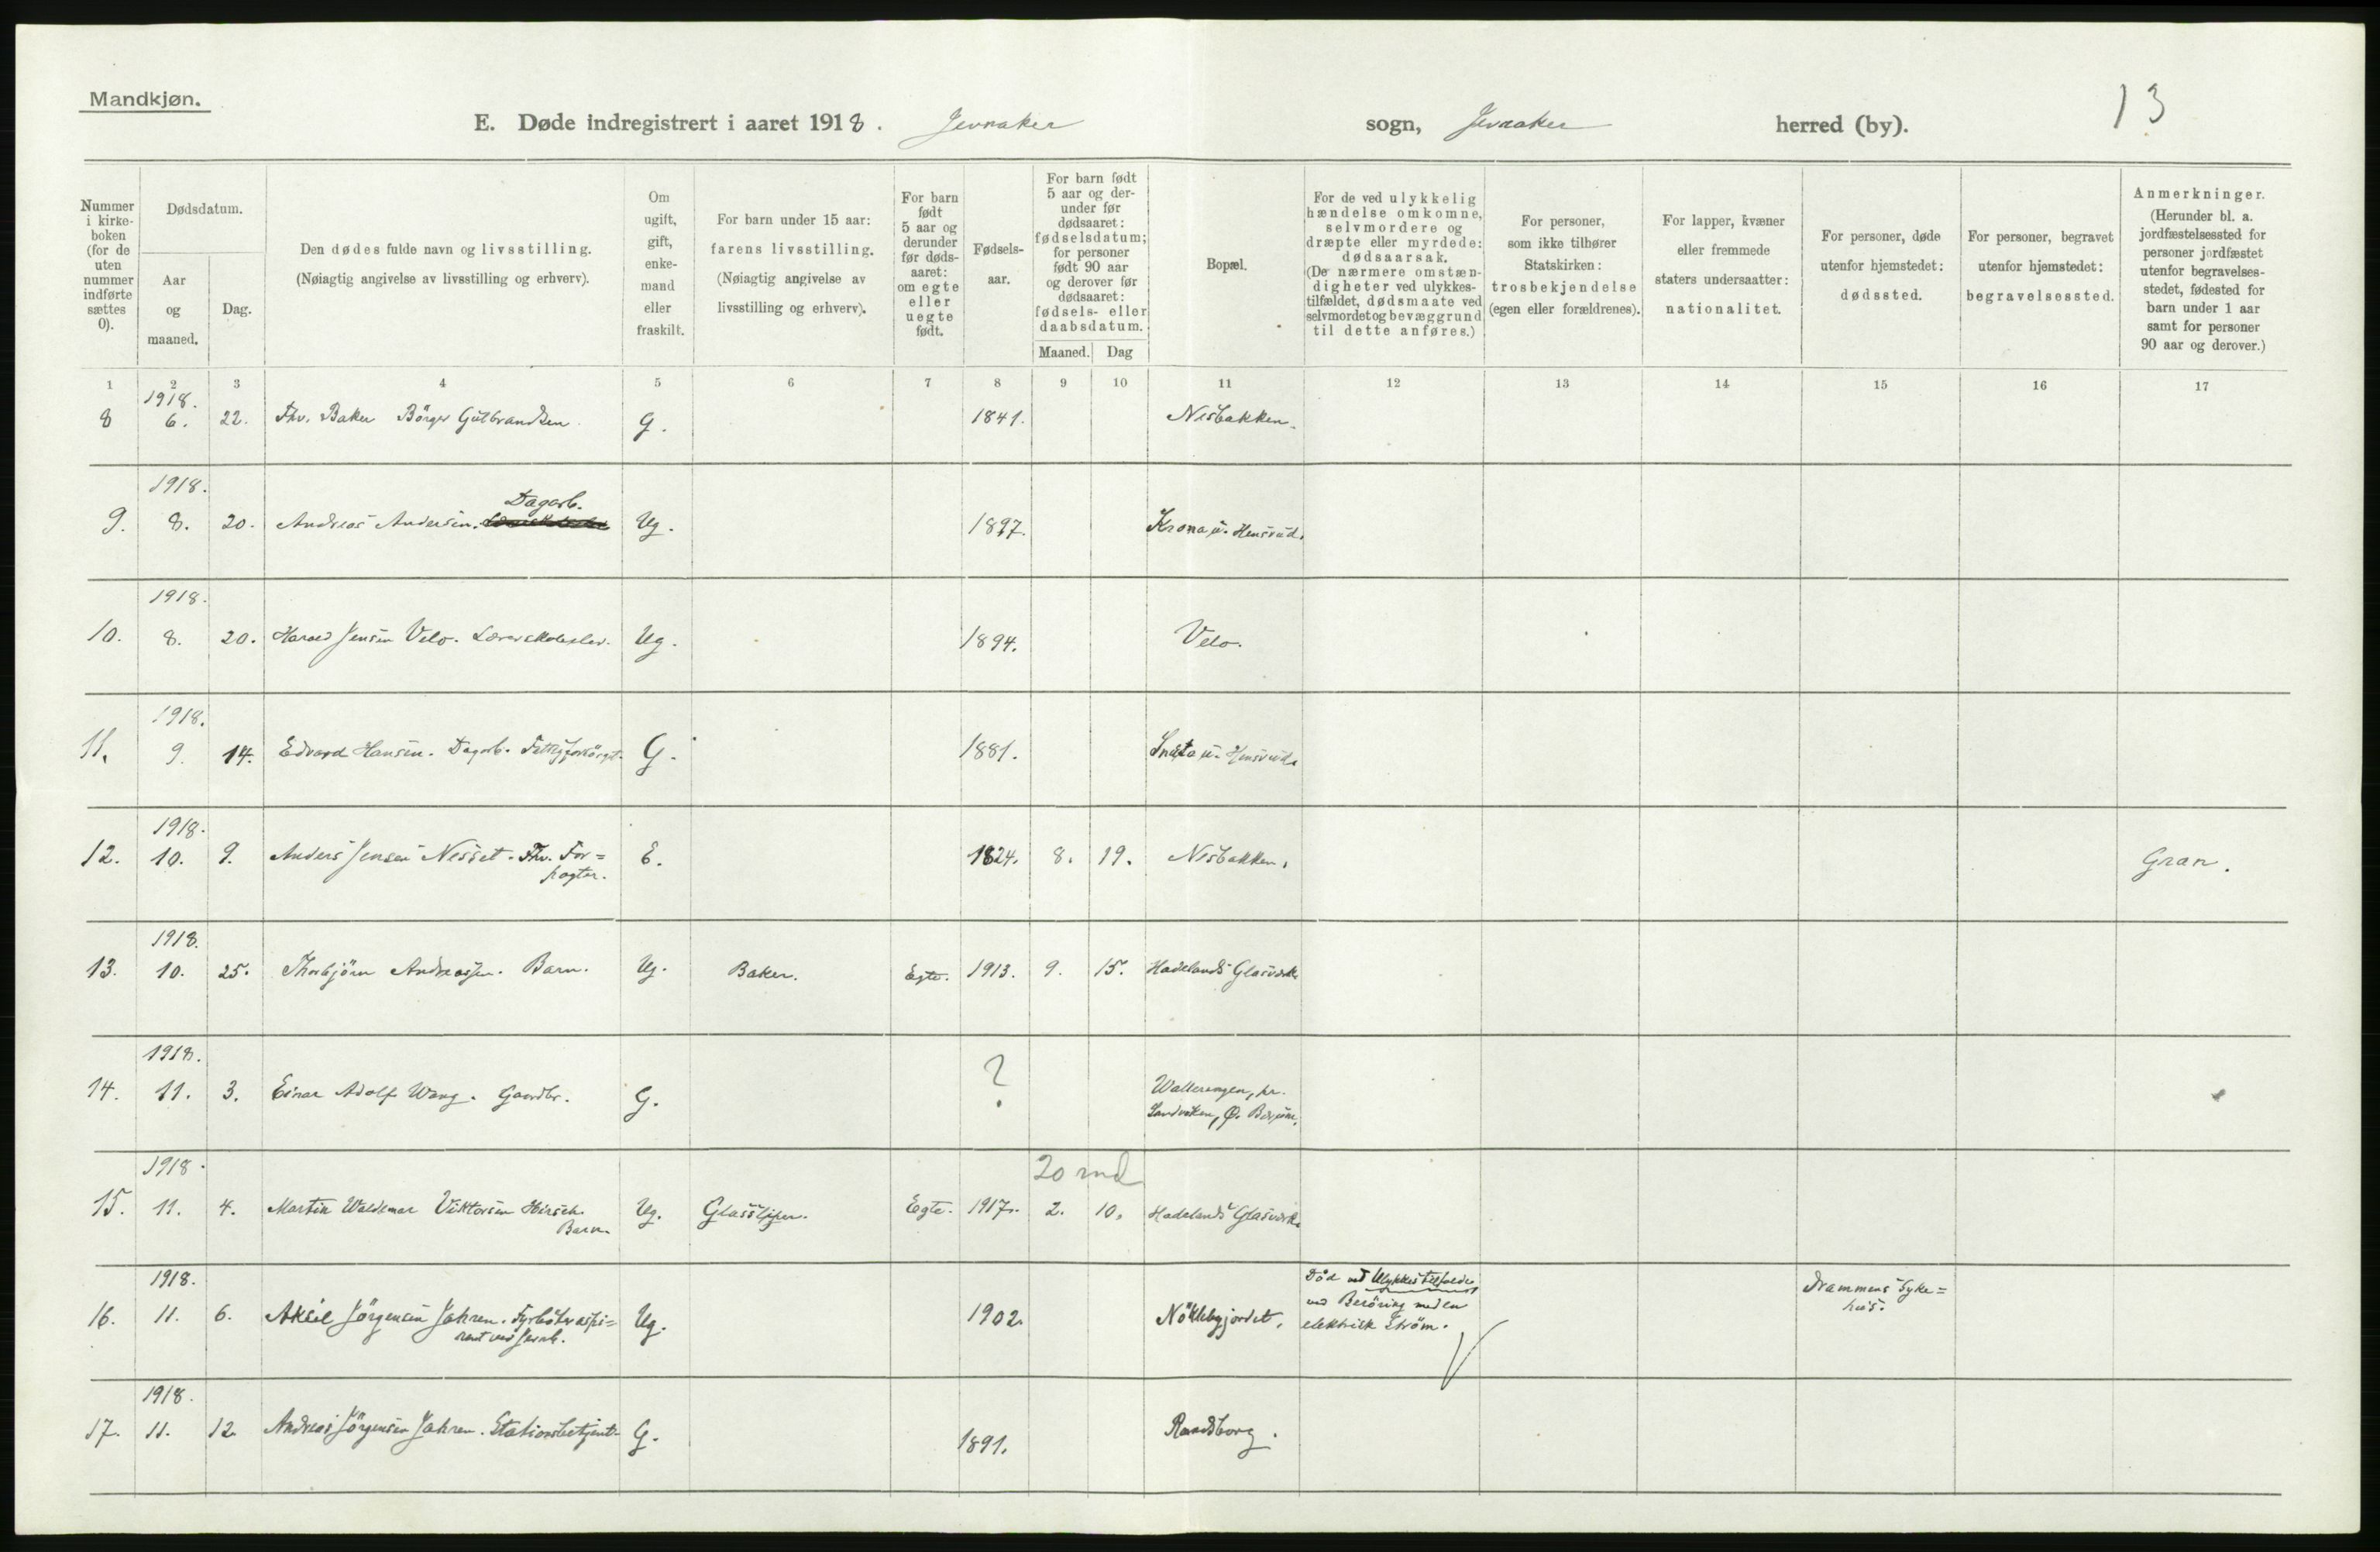 Mandkjøn.
E. Døde indregistrert i aaret 1918. Jevnaker sogn, Jevnaker herred (by). 13
Nummer i kirke-boken (for de uten nummer indførte sættes 0).
Dødsdatum.
Aar og maaned.
Dag.
Den dødes fulde navn og livsstilling.
(Nøiagtig angivelse av livsstilling og erhverv).
Om ugift, gift, enke-mand eller fraskilt.
For barn under 15 aar: farens livsstilling.
(Nøiagtig angivelse av livsstilling og erhverv).
For barn født 5 aar og derunder før døds-aaret: om egte eller uegte født.
Fødsels-aar.
For barn født 5 aar og der-under før dødsaaret: fødselsdatum; for personer født 90 aar og derover før dødsaaret: fødsels- eller daabsdatum.
Maaned.
Dag
Bopæl.
For de ved ulykkelig hændelse omkomne, selvmordere og dræpte eller myrdede: dødsaarsak.
(De nærmere omstæn-digheter ved ulykkes-tilfældet, dødsmaate ved selvmordet og bevæggrund til dette anføres.)
For personer, som ikke tilhører Statskirken: trosbekjendelse (egen eller forældrenes).
For lapper, kvæner eller fremmede staters undersaatter: nationalitet.
For personer, døde utenfor hjemstedet: dødssted.
For personer, begravet utenfor hjemstedet: begravelsessted.
Anmerkninger.
(Herunder bl. a. jordfæstelsessted for personer jordfæstet utenfor begravelses-stedet, fødested for barn under 1 aar samt for personer 90 aar og derover.)
1 2 3 4 5 6 7 8 9 10 11 12 13 14 15 16 17
1918.
8 6. 22. Fhv. Baker Börger Gulbrandsen. G. 1841. Nesbakken.
1918.
Dagarb.
9. 8. 20. Andreas Andersen. Ug. 1897. Krona u. Hensrud.
1918.
10. 8. 20. Harald Jensen Velo. Lærerskoleelev. Ug. 1894. Velo.
1918.
11. 9. 14. Edvard Hansen. Dagarb. Fattigforsörget. G. 1881. u. Hensrud.
1918.
12. 10. 9. Anders Jensen Nesset. Fhv. For=
pagter. E. 1824. 8. 19. Nesbakken. Gran.
1918.
13. 10. 25. Thorbjörn Andreassen. Barn. Ug. Baker. Egte. 1913. 9. 15. Hadelands Glasværk
1918.
14. 11. 3. Einar Adolf Wang. Gaardbr. G. ? pr.
Sandviken, Ø. Bærum.
1918. 20 md
15. 11. 4. Martin Waldemar Viktorsen Hirsch.
Barn. Ug. Glassliper. Egte. 1917. 2. 10. Hadelands Glasværk.
1918.
16. 11. 6. Aksel Jörgensen Jahren. Fyrböteraspi=
rant ved Jernb. Ug. 1902. Nöklebyjordet. Död ved Ulykkestilfælde
ved Beröring med en
elektrisk Ström. Drammens Syke=
hus.
1918.
17. 11. 12. Andreas Jörgensen Jahren. Stationsbetjent. G. 1891. Randsborg.